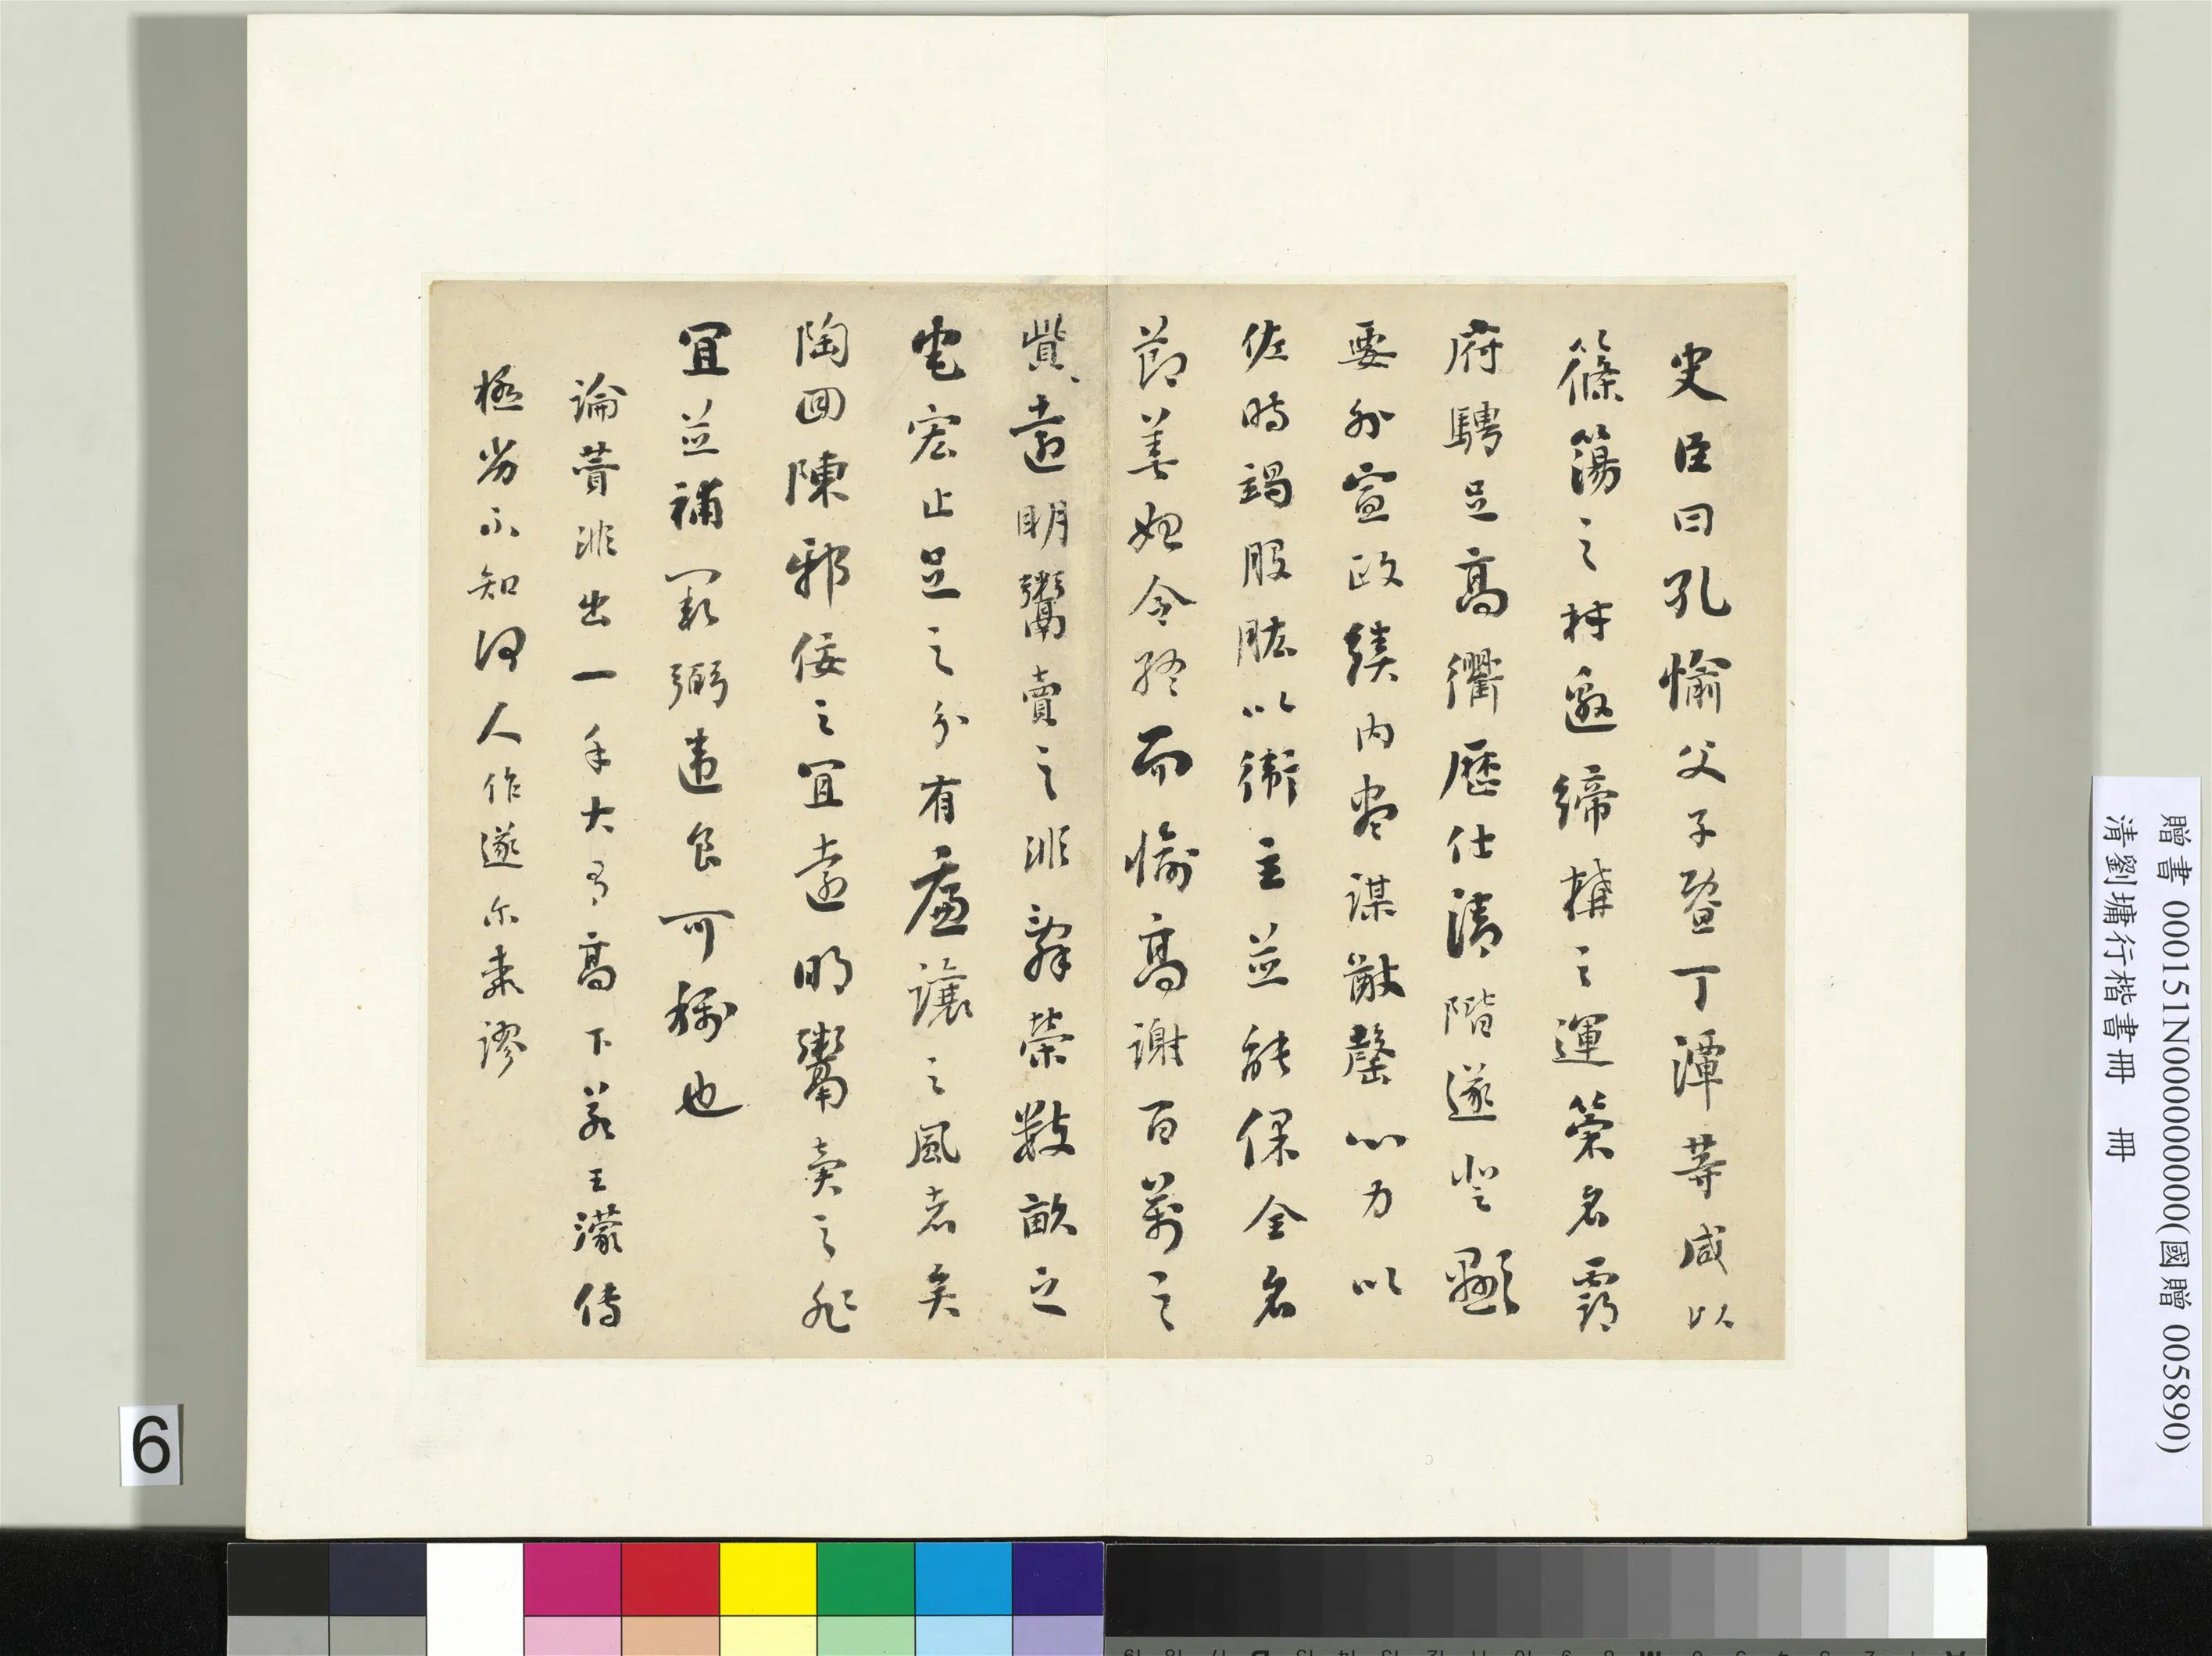 史臣曰孔愉父子暨丁潭等咸以
篠簜之材邀締構之運策名霸
府騁足高衢歷仕清階遂登顯
要外宣政績内盡謀猷罄心力以
佐時竭股肱以衛主並能保全名
節善始令終而愉高謝百萬之
貲遠明鬻賣之非辭榮數畝之
宅宏止足之分有廉讓之風者矣
陶回陳邪佞之宜遠明鬻賣之非
宜並補闕弼違良可稱也
論贊非出一手大有高下若王濛傳
極劣不知何人作遂尔乖謬
贈書 000151N000000000(國贈 005890)
清劉墉行楷書冊 冊
6